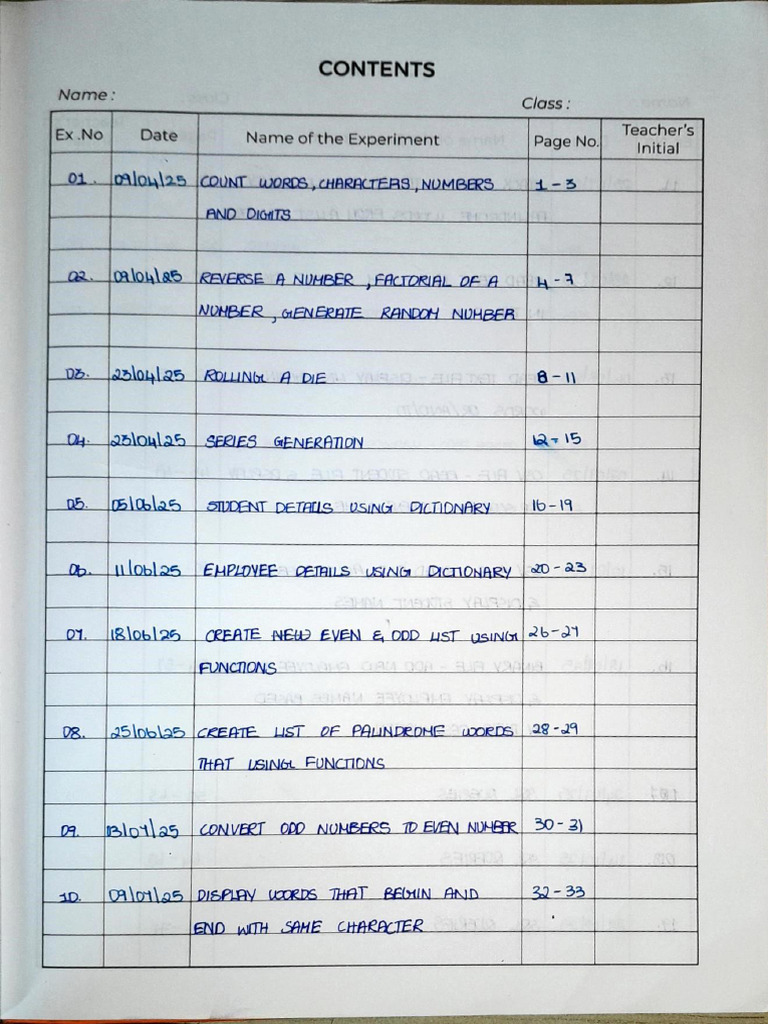 CONTENTS
Name :
Class :
Ex .No Date Name of the Experiment Page No. Teacher's Initial
01. 09/04/25 COUNT WORDS, CHARACTERS, NUMBERS 1 - 3
AND DIGITS
02. 09/04/25 REVERSE A NUMBER , FACTORIAL OF A 4 - 7
NUMBER , GENERATE RANDOM NUMBER
03. 23/04/25 ROLLING A DIE 8 - 11
04. 23/04/25 SERIES GENERATION 12 - 15
05. 05/06/25 STUDENT DETAILS USING DICTIONARY 16 - 19
06. 11/06/25 EMPLOYEE DETAILS USING DICTIONARY 20 - 23
07. 18/06/25 CREATE NEW EVEN & ODD LIST USING 26 - 27
FUNCTIONS
08. 25/06/25 CREATE LIST OF PALINDROME WORDS 28 - 29
THAT USING FUNCTIONS
09. 03/07/25 CONVERT ODD NUMBERS TO EVEN NUMBER 30 - 31
10. 09/07/25 DISPLAY WORDS THAT BEGIN AND 32 - 33
END WITH SAME CHARACTER